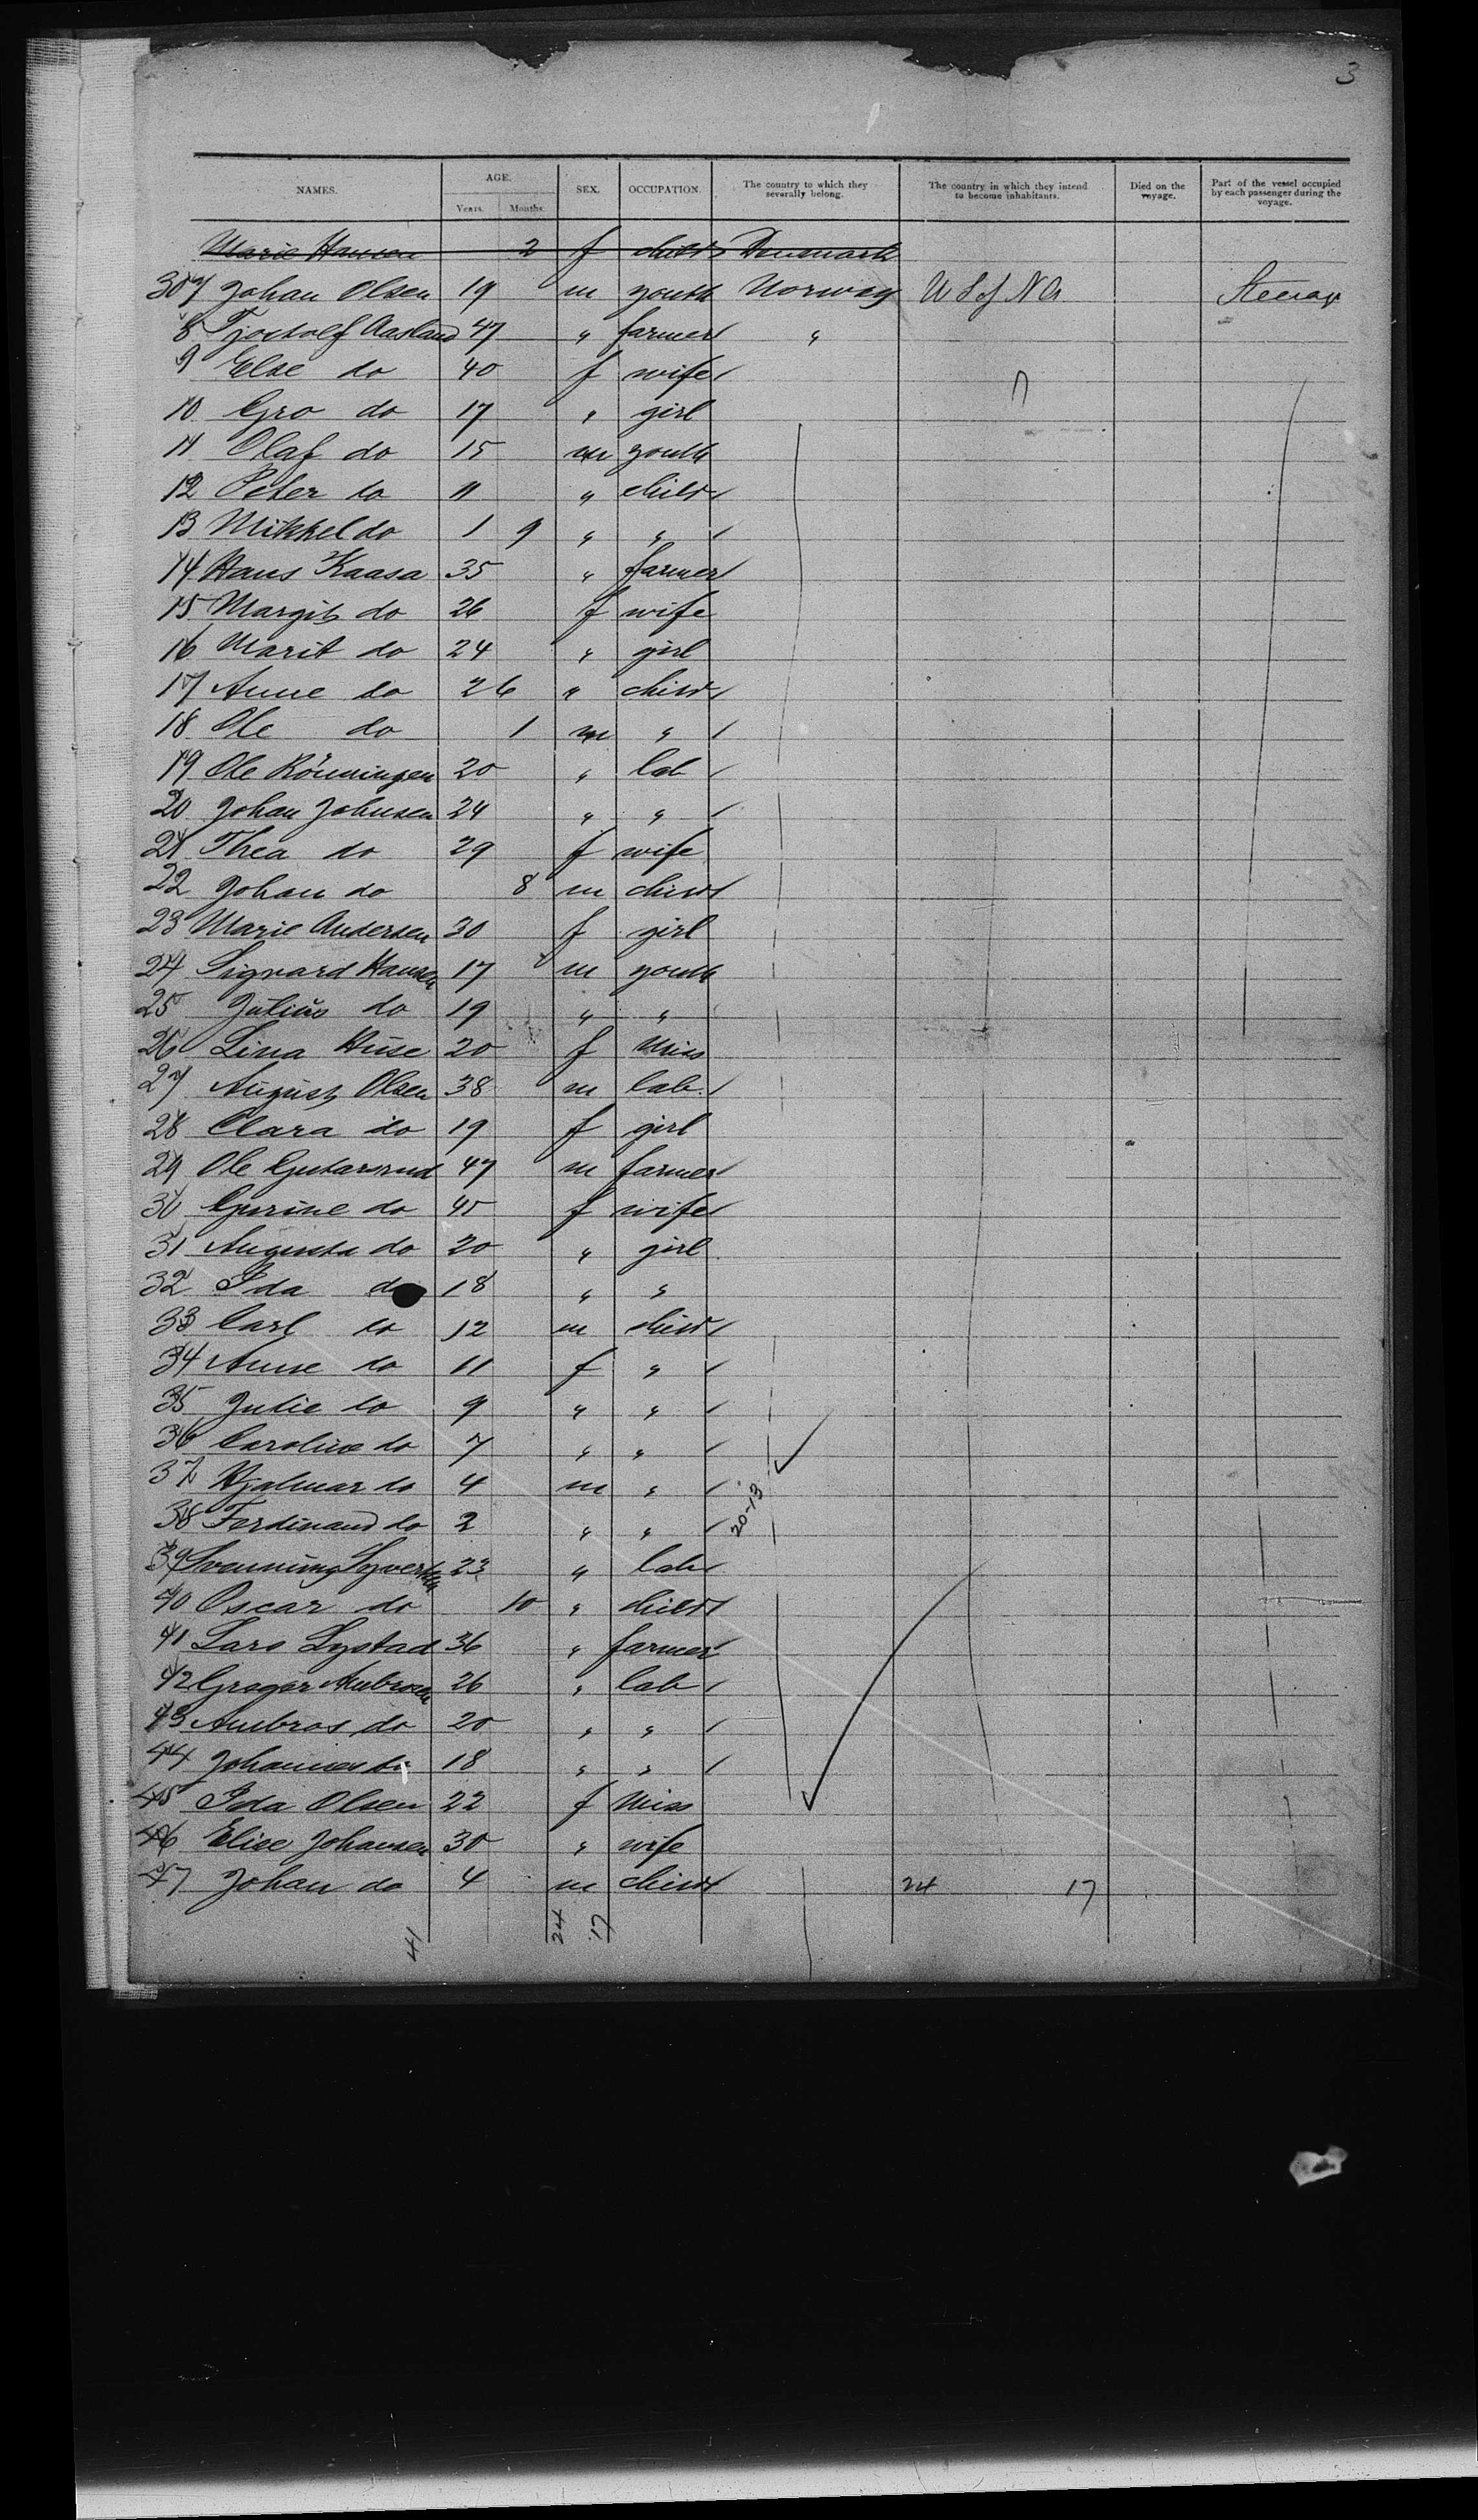 3
NAMES. AGE. Years. Months. SEX. OCCUPATION. The country to which they severally belong. The country in which they intend to become inhabitants. Died on the voyage. Part of the vessel occupied by each passenger during the voyage.
Marie Hansen 2 f child Denmark
307 Johan Olsen 19 m youth Norway U S of N A Steerage
8 Tjostolf Aasland 47 " farmer "
9 Else do 40 f wife
10 Gro do 17 " girl
11 Olaf do 15 m youth
12 Peter do 11 " child
13 Mikkel do 1 9 " "
14 Hans Kaasa 35 " farmer
15 Margit do 26 f wife
16 Marit do 24 " girl
17 Anne do 2 6 " child
18 Ole do 1 m "
19 Ole Rönningen 20 " lab
20 Johan Johnsen 24 " "
21 Thea do 29 f wife
22 Johan do 8 m child
23 Marie Andersen 30 f girl
24 Sigvard Hansen 17 m youth
25 Julius do 19 " "
26 Lina Huse 20 f Miss
27 August Olsen 38 m lab.
28 Clara do 19 f girl
29 Ole 47 m farmer
30 Gurine do 45 f wife
31 Augusta do 20 " girl
32 Ida do 18 " "
33 Carl do 12 m child
34 Anne do 11 f "
35 Julie do 9 " "
36 Caroline do 7 " "
37 Hjalmar do 4 m "
38 Ferdinand do 2 " " 20-13
39 Svenning Syversen 23 " lab
40 Oscar do 10 " child
41 Lars Lystad 36 " farmer
42 Gregar Ambrosen 26 " lab
43 Ambros do 20 " "
44 Johannes do 18 " "
45 Ida Olsen 22 f Miss
46 Elise Johansen 30 " wife
47 Johan do 4 m child 24 17
41 24 17